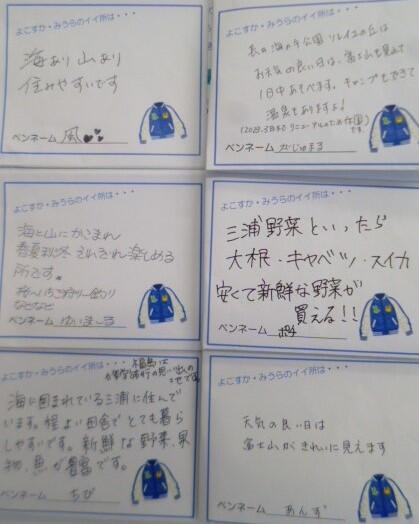 よこすか・みうらのイイ所は・・・
海あり 山あり
住みやすいです
ペンネーム 風
よこすか・みうらのイイ所は・・・
長井海の手公園 ソレイユの丘は
お天気の良い日は、富士山も見えて
1日中あそべます。キャンプもできて
温泉もありますよ!
リニューアルのため休園
です
ペンネーム がじゅまる
よこすか・みうらのイイ所は・・・
海と山にかこまれ
春夏秋冬 それぞれ楽しめる
所です。
桜、いちご狩り、釣り
などなど
ペンネーム ゆいまーる
よこすか・みうらのイイ所は・・・
三浦野菜といったら
大根・キャベツ・スイカ
安くて新鮮な野菜が
買える!!
ペンネーム
よこすか・みうらのイイ所は・・・
福島は
修学旅行の思い出の
地です
海に囲まれている三浦に住んで
います。程よい田舎でとても暮ら
しやすいです。新鮮な野菜、果
物、魚が豊富です。
ペンネーム ちび
よこすか・みうらのイイ所は・・・
天気の良い日は
富士山がきれいに見えます
ペンネーム あんず